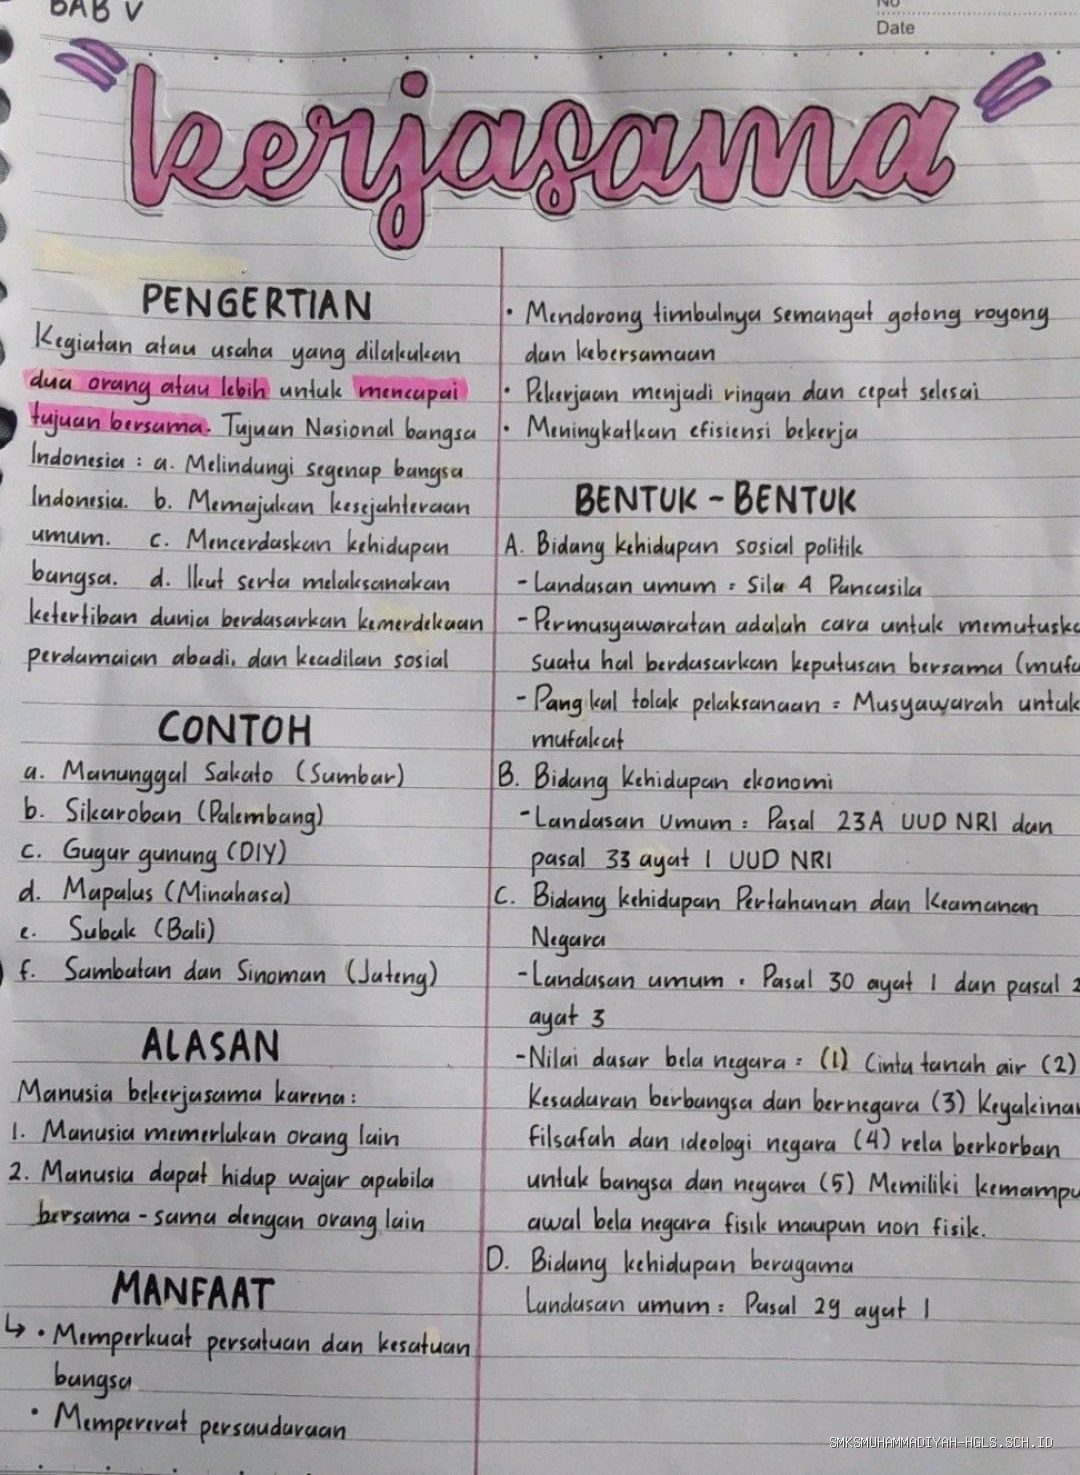 BAB V
No
Date
kerjasama
PENGERTIAN
Kegiatan atau usaha yang dilakukan
dua orang atau lebih untuk mencapai
tujuan bersama. Tujuan Nasional bangsa
Indonesia : a. Melindungi segenap bangsa
Indonesia. b. Memajukan kesejahteraan
umum. c. Mencerdaskan kehidupan
bangsa. d. Ikut serta melaksanakan
ketertiban dunia berdasarkan kemerdekaan
perdamaian abadi, dan keadilan sosial
CONTOH
a. Manunggal Sakato (Sumbar)
b. Sikaroban (Palembang)
c. Gugur gunung (DIY)
d. Mapalus (Minahasa)
e. Subak (Bali)
f. Sambatan dan Sinoman (Jateng)
ALASAN
Manusia bekerjasama karena :
1. Manusia memerlukan orang lain
2. Manusia dapat hidup wajar apabila
bersama - sama dengan orang lain
MANFAAT
↳ • Memperkuat persatuan dan kesatuan
bangsa
• Mempererat persaudaraan
• Mendorong timbulnya semangat gotong royong
dan kebersamaan
• Pekerjaan menjadi ringan dan cepat selesai
• Meningkatkan efisiensi bekerja
BENTUK - BENTUK
A. Bidang kehidupan sosial politik
- Landasan umum : Sila 4 Pancasila
- Permusyawaratan adalah cara untuk memutuska
suatu hal berdasarkan keputusan bersama (mufa
- Pangkal tolak pelaksanaan : Musyawarah untuk
mufakat
B. Bidang Kehidupan ekonomi
- Landasan Umum : Pasal 23A UUD NRI dan
pasal 33 ayat 1 UUD NRI
C. Bidang kehidupan Pertahanan dan Keamanan
Negara
- Landasan umum . Pasal 30 ayat 1 dan pasal 2
ayat 3
- Nilai dasar bela negara : (1) Cinta tanah air (2)
Kesadaran berbangsa dan bernegara (3) Keyakinan
filsafah dan ideologi negara (4) rela berkorban
untuk bangsa dan negara (5) Memiliki kemampu
awal bela negara fisik maupun non fisik.
D. Bidang kehidupan beragama
Landasan umum : Pasal 29 ayat 1
SMKSMUHAMMADIYAH-HGLS.SCH.ID